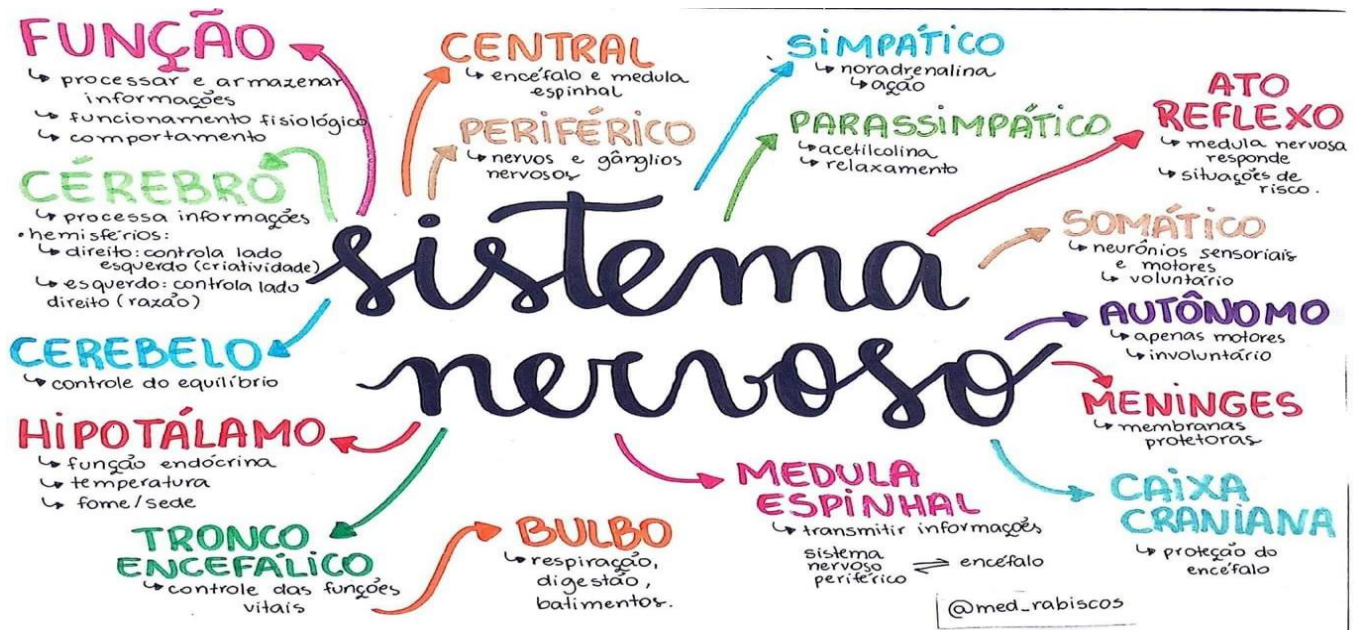 FUNÇÃO
↳ processar e armazenar
informações
↳ funcionamento fisiológico
↳ comportamento
CÉREBRO
↳ processa informações
• hemisférios:
↳ direito: controla lado
esquerdo (criatividade)
↳ esquerdo: controla lado
direito (razão)
CEREBELO
↳ controle do equilíbrio
HIPOTÁLAMO
↳ função endócrina
↳ temperatura
↳ fome/sede
TRONCO
ENCEFÁLICO
↳ controle das funções
vitais
BULBO
↳ respiração,
digestão,
batimentos.
CENTRAL
↳ encéfalo e medula
espinhal
PERIFÉRICO
↳ nervos e gânglios
nervosos
sistema
nervoso
SIMPÁTICO
↳ noradrenalina
↳ ação
PARASSIMPÁTICO
↳ acetilcolina
↳ relaxamento
ATO
REFLEXO
↳ medula nervosa
responde
↳ situações de
risco.
SOMÁTICO
↳ neurônios sensoriais
e motores
↳ voluntário
AUTÔNOMO
↳ apenas motores
↳ involuntário
MENINGES
↳ membranas
protetoras
MEDULA
ESPINHAL
↳ transmitir informações
sistema
nervoso
periférico ⇌ encéfalo
CAIXA
CRANIANA
↳ proteção do
encéfalo
@med_rabiscos